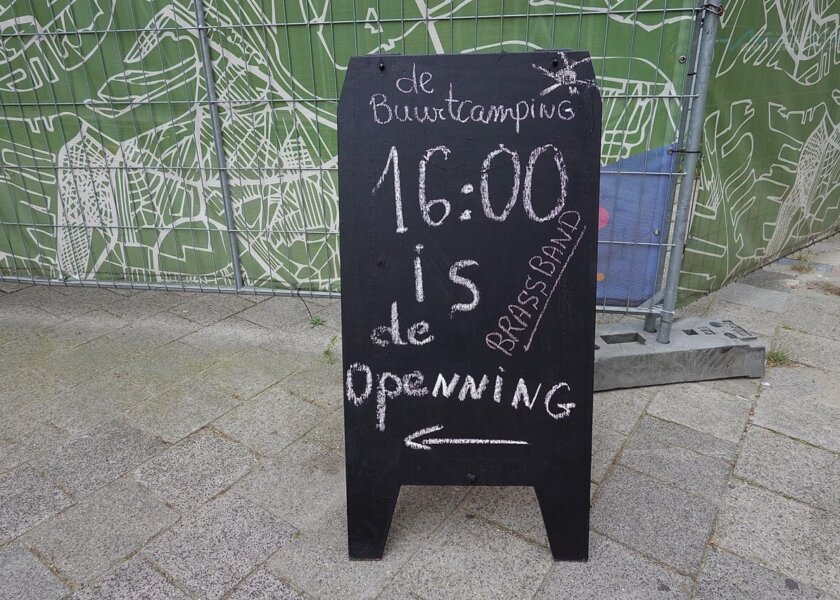 de
BuurtcampiNG
16:00
is
BRASS BAND
de
OpeNNiNG